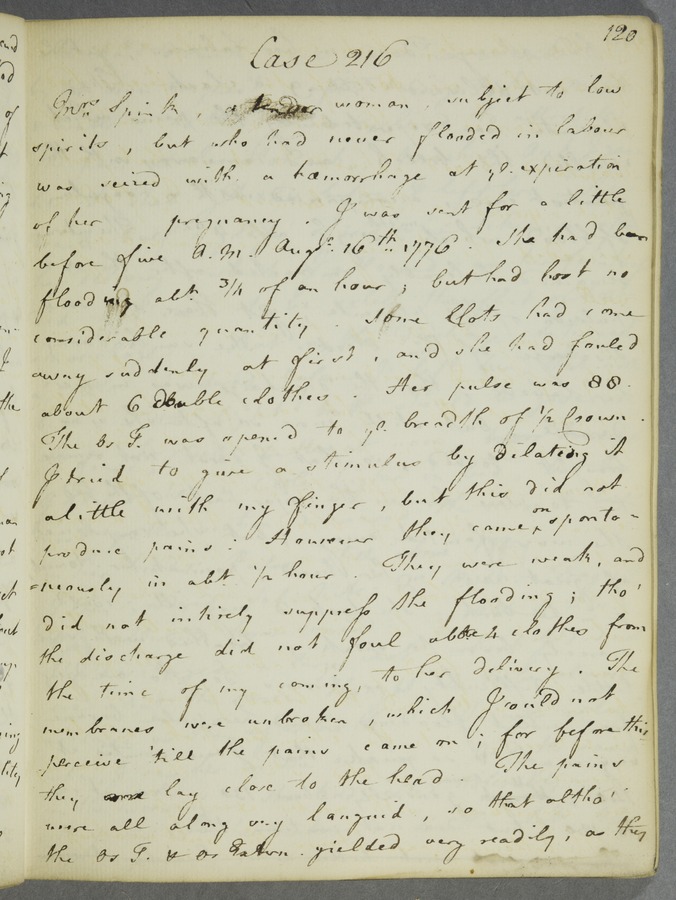 120
Case 216
Mrs. Spink, a tender woman, subject to low
spirits, but who had never flooded in labour
was seized with a hæmorrhage at ye. expiration
of her pregnancy. I was sent for a little
before five A.M. Augt. 16th. 1776. She had been
flooding abt. 3/4 of an hour; but had lost no
considerable quantity. Some Clots had come
away suddenly at first, and she had fouled
about 6 double clothes. Her pulse was 88.
The Os T. was open'd to ye. breadth of 1/2 Crown.
I tried to give a stimulus by dilating it
a little with my finger, but this did not
produce pains: However they came on sponta-
-neously in abt. 1/2 hour. They were weak, and
did not intirely suppress the flooding; tho'
the discharge did not foul 4 clothes from
the time of my coming, to her delivery. The
membranes were unbroken, which I could not
perceive 'till the pains came on; for before this
they lay close to the head. The pains
were all along very languid, so that altho'
the Os T. & Os Extern. yielded very readily, as they